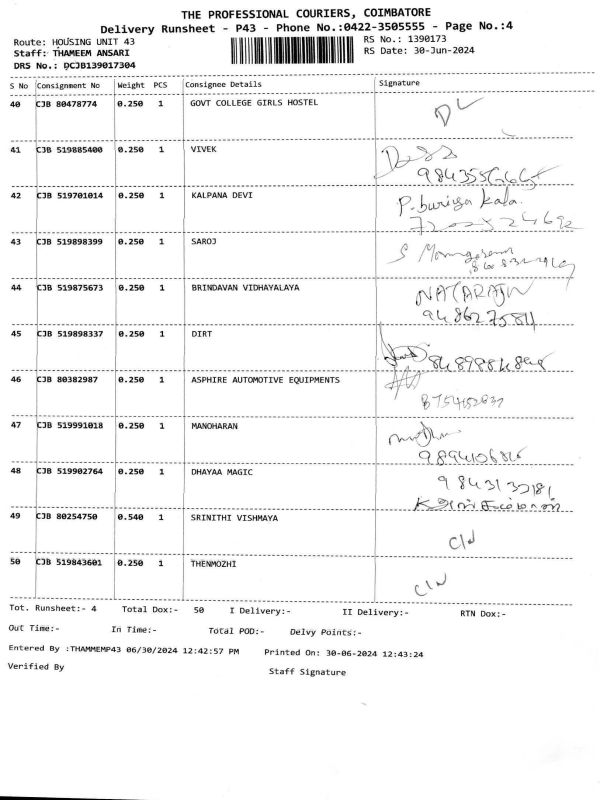 THE PROFESSIONAL COURIERS, COIMBATORE
Delivery Runsheet - P43 - Phone No.:0422-3505555 - Page No.:4
Route: HOUSING UNIT 43 RS No.: 1390173
Staff: THAMEEM ANSARI RS Date: 30-Jun-2024
DRS No.: DCJB139017304
S No Consignment No Weight PCS Consignee Details Signature
40 CJB 80478774 0.250 1 GOVT COLLEGE GIRLS HOSTEL DL
41 CJB 519885400 0.250 1 VIVEK
42 CJB 519701014 0.250 1 KALPANA DEVI P.
43 CJB 519898399 0.250 1 SAROJ S
44 CJB 519875673 0.250 1 BRINDAVAN VIDHAYALAYA NATARAJN
9486627584
45 CJB 519898337 0.250 1 DIRT
46 CJB 80382987 0.250 1 ASPHIRE AUTOMOTIVE EQUIPMENTS
47 CJB 519991018 0.250 1 MANOHARAN
48 CJB 519902764 0.250 1 DHAYAA MAGIC
49 CJB 80254750 0.540 1 SRINITHI VISHMAYA
50 CJB 519843601 0.250 1 THENMOZHI
Tot. Runsheet:- 4 Total Dox:- 50 I Delivery:- II Delivery:- RTN Dox:-
Out Time:- In Time:- Total POD:- Delvy Points:-
Entered By :THAMMEMP43 06/30/2024 12:42:57 PM Printed On: 30-06-2024 12:43:24
Verified By Staff Signature